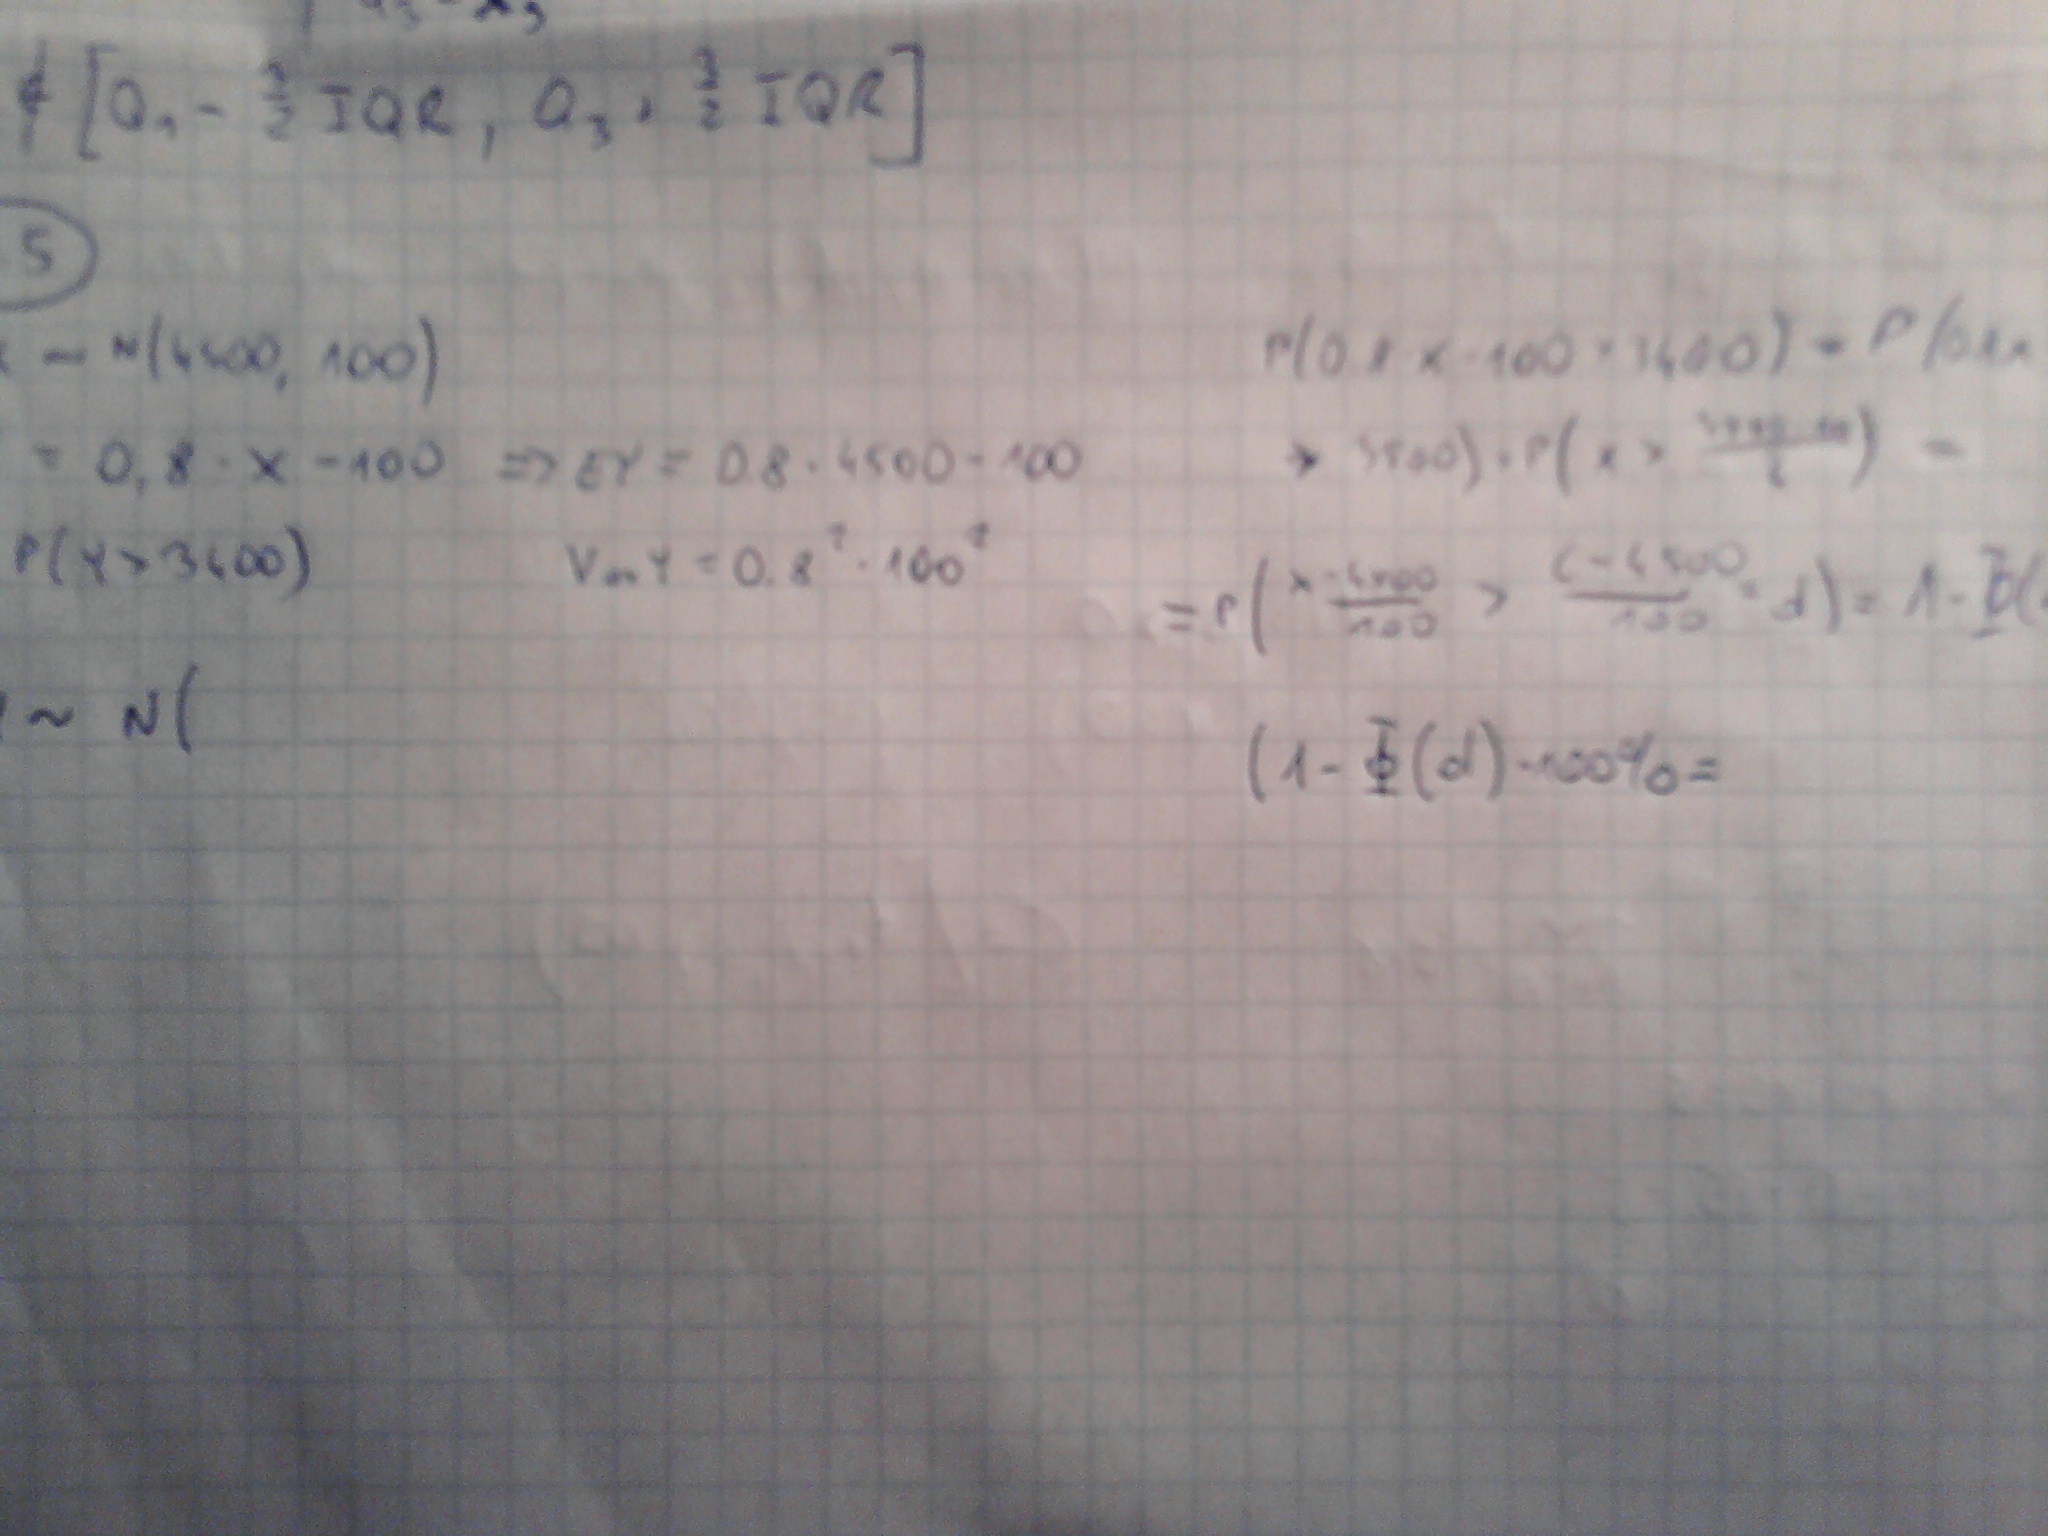 ∉ [Q₁ - 3/2 IQR, Q₃, 3/2 IQR]
5
~ N(4500, 100)
= 0,8 · X - 100 => EY = 0.8 · 4500 - 100
P(Y > 3400)
Var Y = 0.8² · 100²
~ N(
P(0.8 X - 100 > 3400) = P(
3500) = P(X >
= P(X - 4500 / 100 >
- 4500 / 100 =
= 1 - Φ(
(1 - Φ( ) · 100% =